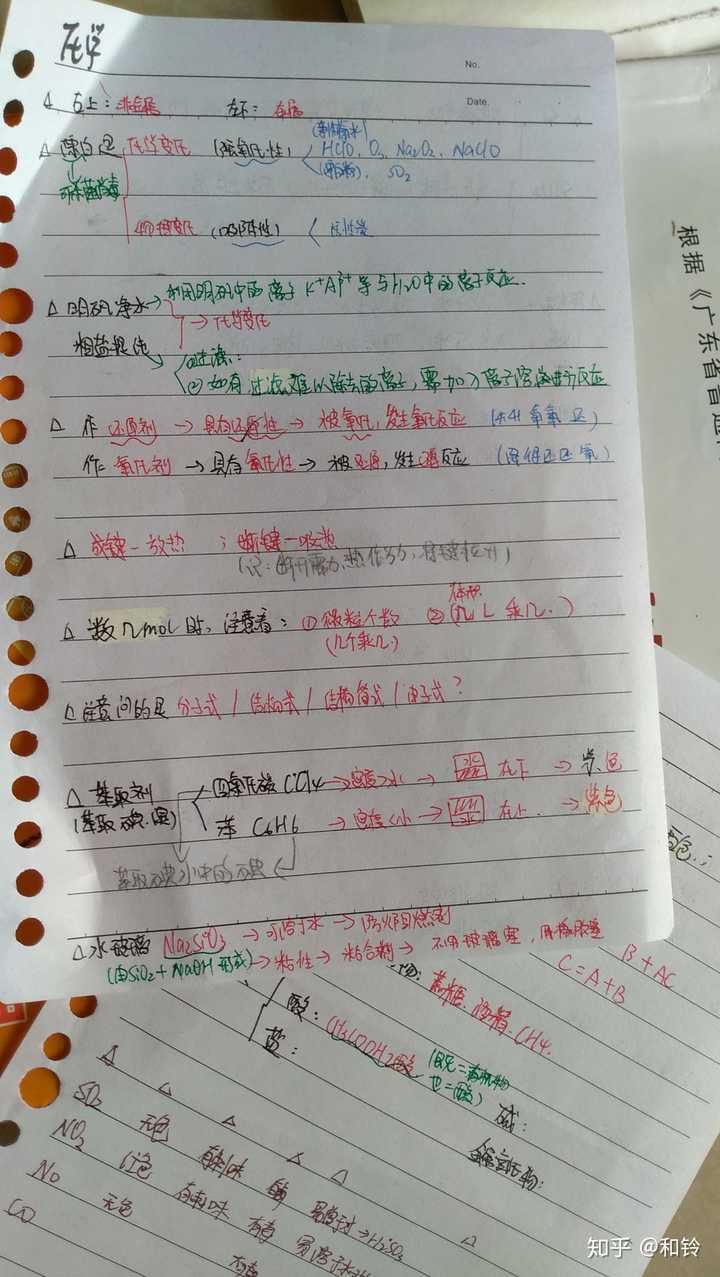 化学
No.
Date.
△ 右上：非金属 左下：金属
△ 漂白是 化学变化 (强氧化性) HClO、O₃、Na₂O₂、NaClO
可杀菌消毒 SO₂
物理变化 (吸附性) 活性炭
△ 明矾净水 → 利用明矾中的离子 K⁺Al³⁺等与H₂O中的离子反应.
→ 化学变化
粗盐提纯 ①过滤：
② 如有过滤难以除去的离子，需加入离子溶液进行反应
△ 作 还原剂 → 具有还原性 → 被氧化，发生氧化反应 (失升氧氧还)
作：氧化剂 → 具有氧化性 → 被还原，发生还原反应 (降得还还氧)
△ 成键一放热 ；断键一吸热
△ 数几mol时，注意看：①微粒个数 ②(几L乘几.)
体积
(几个乘几)
△ 注意问的是 分子式 / 结构式 / 结构简式 / 电子式？
△ 萃取剂 四氯化碳 CCl4 → 密度>水 → 在下 → 紫色
(萃取碘.溴) 苯 C6H6 → 密度<水 → 在上. → 紫色
萃取碘水中的碘
△ 水玻璃 Na₂SiO₃ → 可溶于水 → 防火阻燃剂
(由SiO₂ + NaOH 形成) → 粘性 → 粘合剂 → 不用玻璃塞，用橡胶塞
B + AC
C = A + B
蔗糖. 酒精. CH4.
酸：CH3COOH
盐：
碱：
氧化物：
△ △ △ △ △ △
SO₂ 无色
NO₂ 红色 有刺味 有毒
NO 无色
CO
有毒
根据《广东省普通
知乎 @和铃